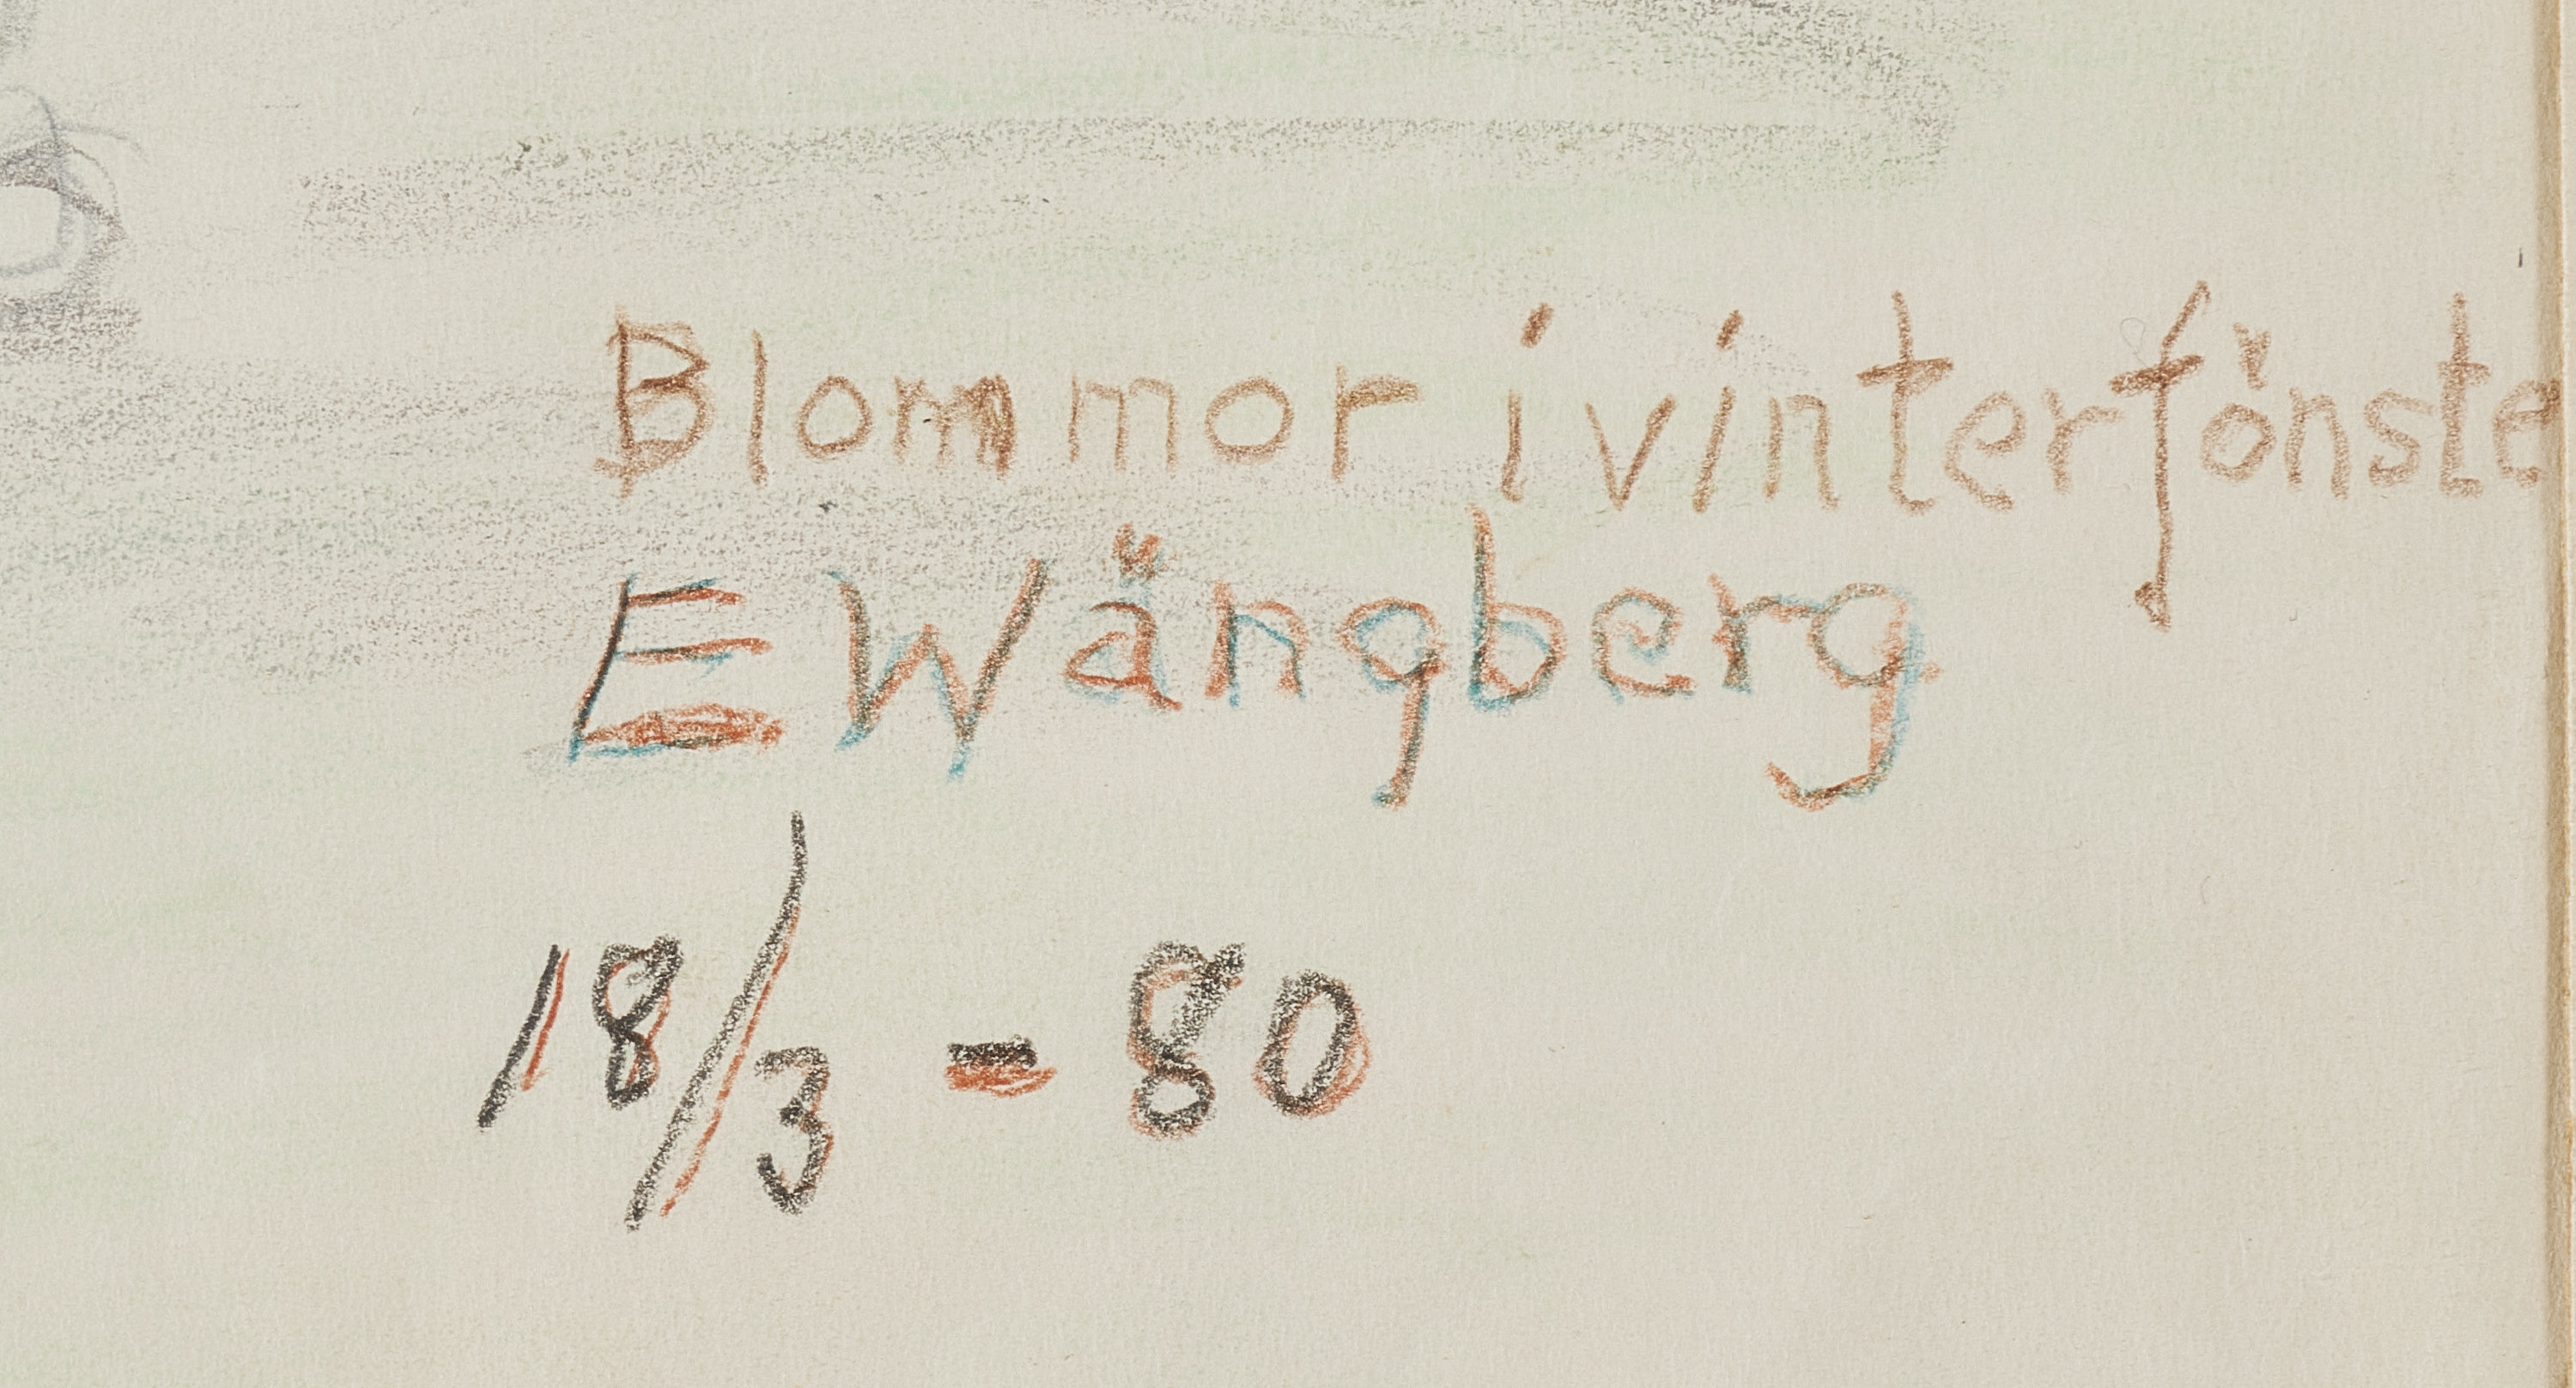 Blommor i vinterfönste
E Wängberg
18/3 - 80